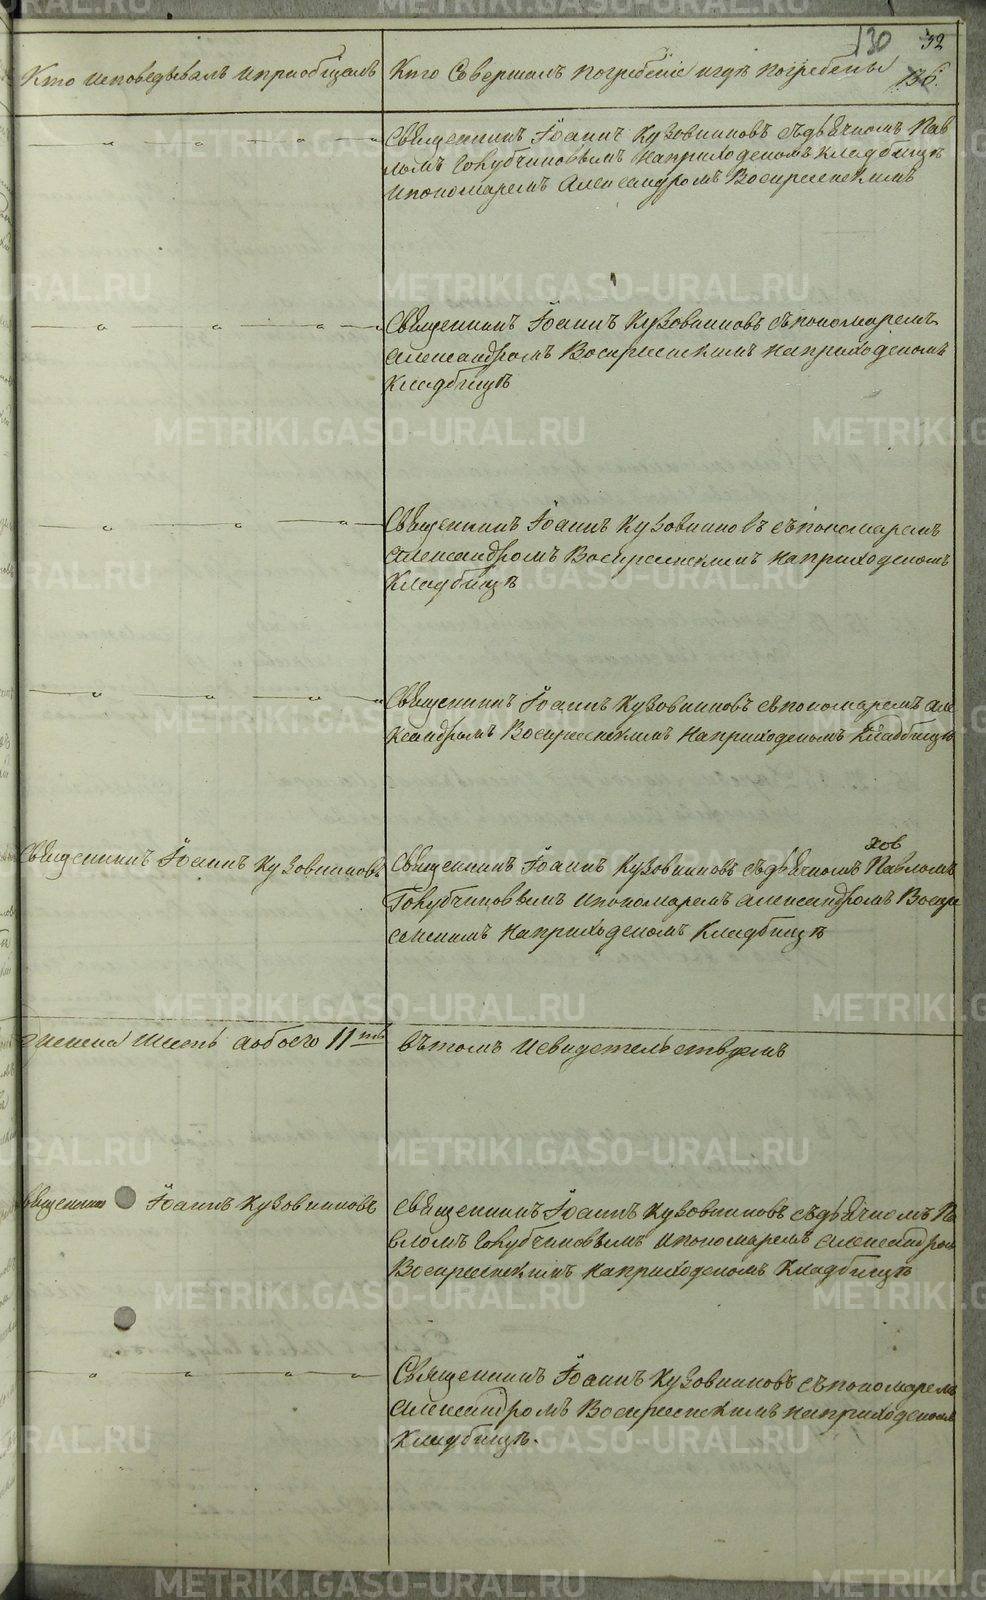 130 32
136
Кто исповедывалъ и приобщалъ
Кто совершалъ погребение и где погребены
Священникъ Iоаннъ Кузовниковъ съ дьячкомъ Пав
ломъ Голубчиковымъ на приходскомъ кладбищѣ
и пономаремъ Александромъ Воскресенскимъ
Священникъ Iоаннъ Кузовниковъ съ пономаремъ
Александромъ Воскресенскимъ на приходскомъ
кладбищѣ
Священникъ Iоаннъ Кузовниковъ съ пономаремъ
Александромъ Воскресенскимъ на приходскомъ
кладбищѣ
Священникъ Iоаннъ Кузовниковъ съ пономаремъ Але
ксандромъ Воскресенскимъ на приходскомъ кладбищѣ
Священникъ Iоаннъ Кузовниковъ
хов
Священникъ Iоаннъ Кузовниковъ съ дьячкомъ Павломъ
Голубчиковымъ и пономаремъ Александромъ Воскре
сенскимъ на приходскомъ кладбищѣ
женска шесть а обоего 11ть
въ томъ и свидетельствуемъ
Священникъ Iоаннъ Кузовниковъ
Священникъ Iоаннъ Кузовниковъ съ дьячкомъ Па
вломъ Голубчиковымъ и пономаремъ Александром
Воскресенскимъ на приходскомъ кладбищѣ
Священникъ Iоаннъ Кузовниковъ съ пономаремъ
Александромъ Воскресенскимъ на приходскомъ
кладбищѣ.
METRIKI.GASO-URAL.RU